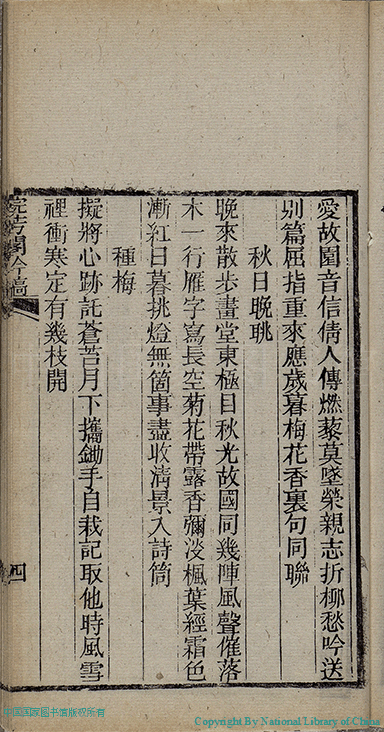 愛故園音信倩人傳燃藜莫墜榮親志折柳愁吟送
別篇屈指重來應歲暮梅花香裏句同聯
秋日晚眺
晚來散步畫堂東極目秋光故國同幾陣風聲催落
木一行雁字寫長空菊花帶露香彌淡楓葉經霜色
漸紅日暮挑燈無箇事盡收清景入詩筒
種梅
擬將心跡託蒼苔月下攜鋤手自栽記取他時風雪
裡衝寒定有幾枝開
吟稿
四
中国国家图书馆版权所有
Copyright By National Library of China